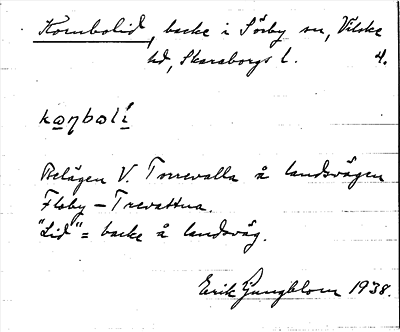 Kornbolid, backe i Sörby sn, Vilske
hd, Skaraborgs l. 4.
kaŋbolí
Belägen V. Torrevalla å landsvägen
Floby – Trevattna.
"Lid" = backe å landsväg.
Erik Ljungblom 1938.